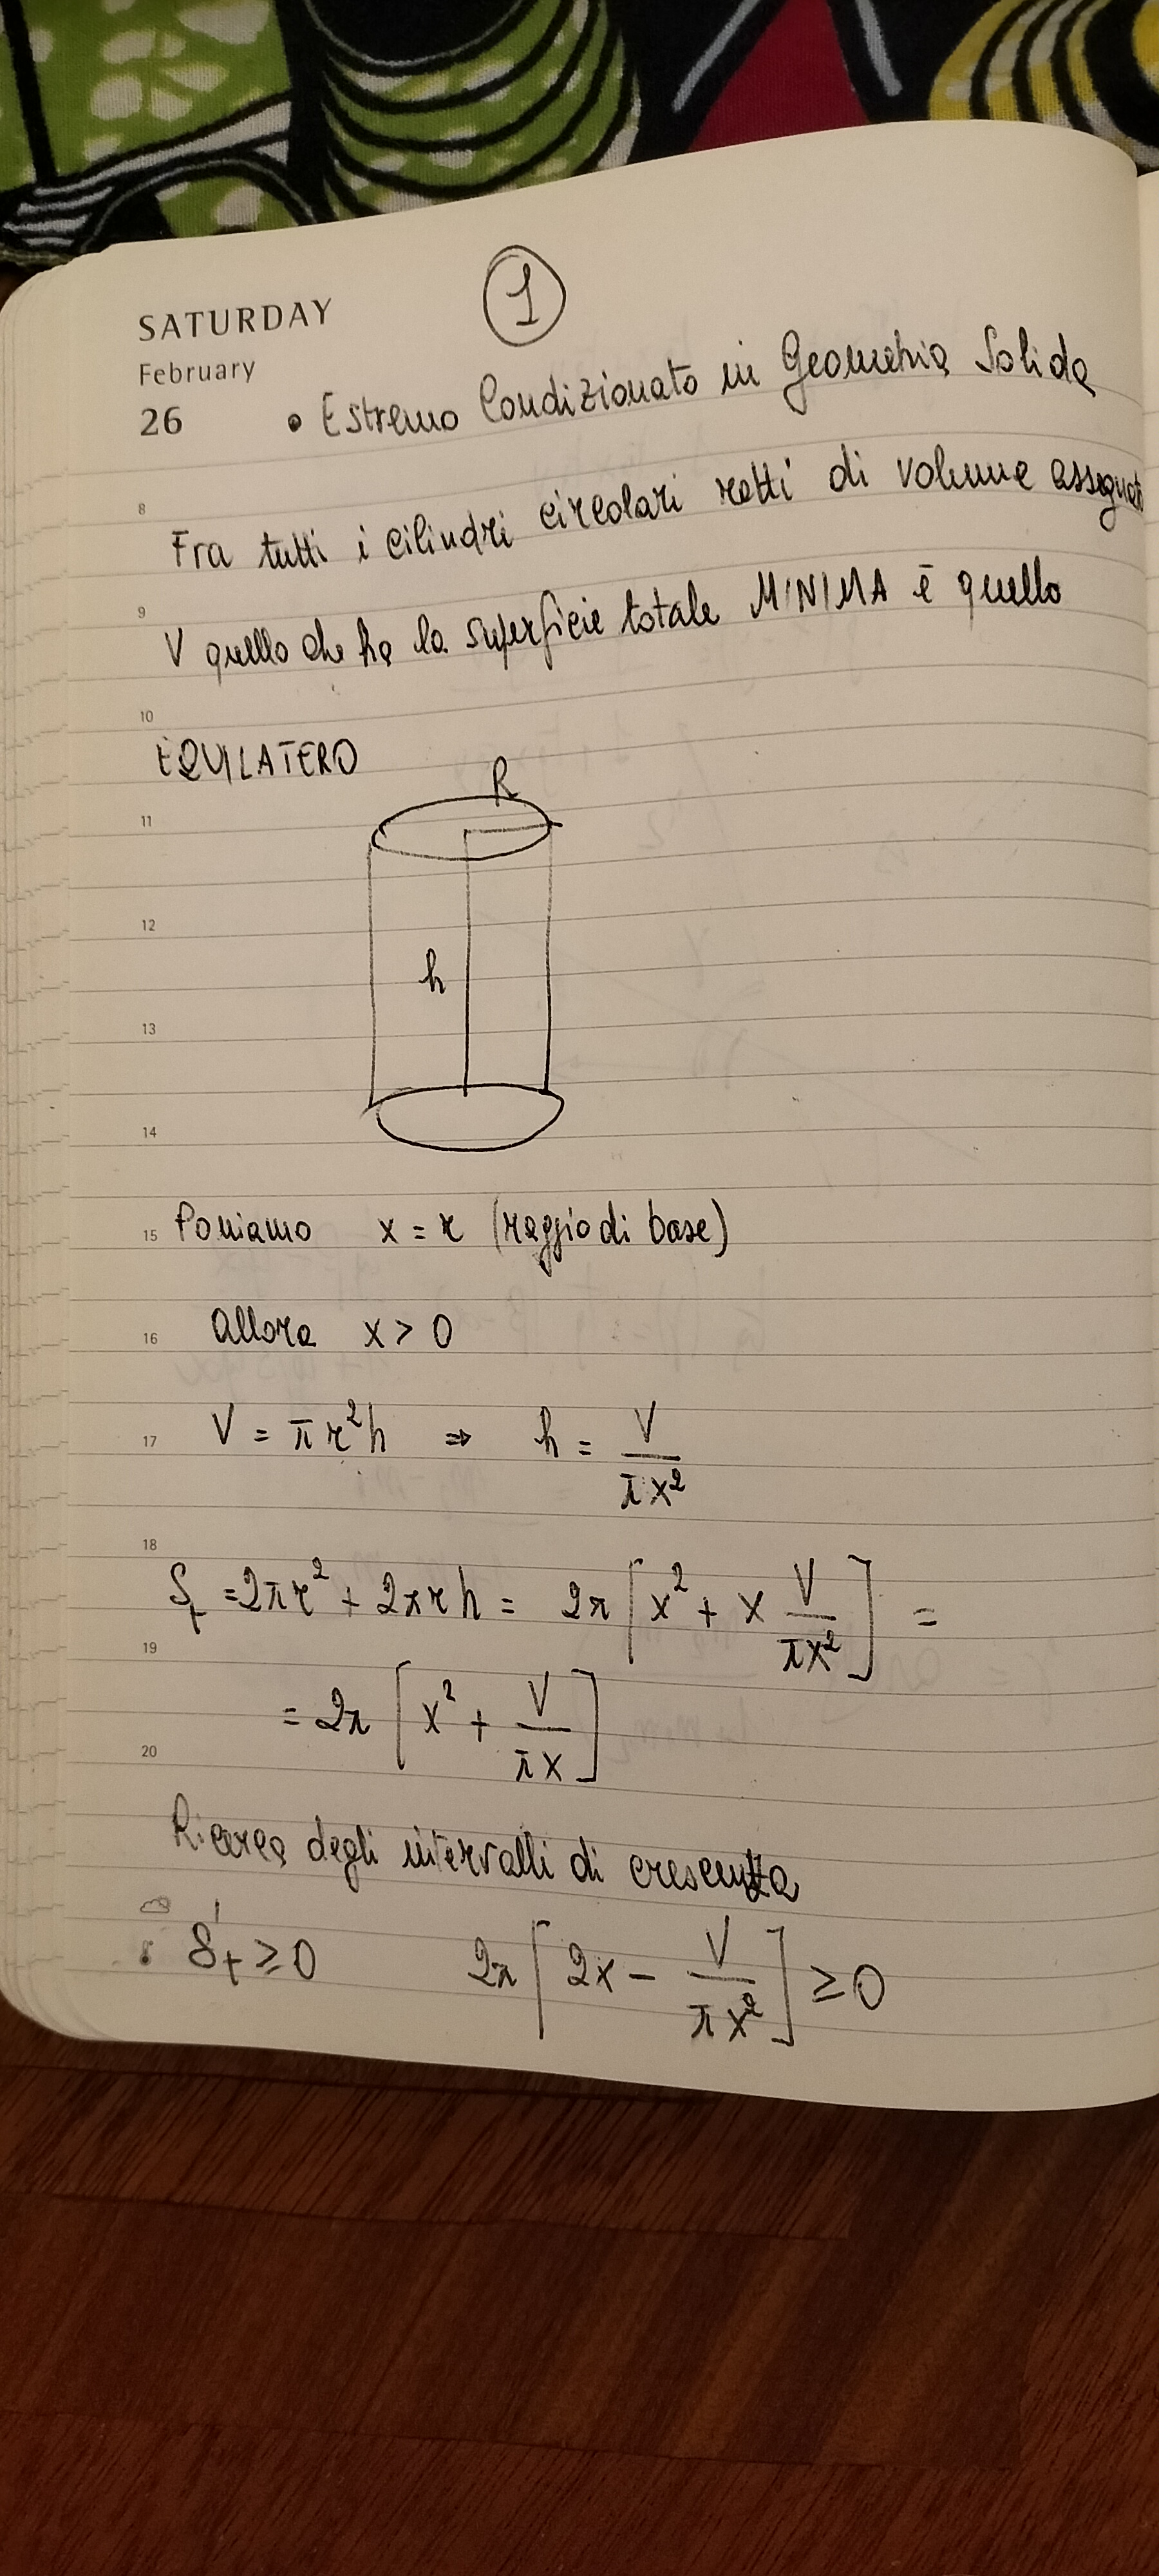 1
SATURDAY
February
26
• Estremo Condizionato in Geometria Solida
8
Fra tutti i cilindri circolari retti di volume assegnat
9
V quello che ha la superficie totale MINIMA è quello
10
EQUILATERO
R
11
12
h
13
14
15 Poniamo x = r (raggio di base)
16 Allora x > 0
17 V = πr²h ⇒ h = V/πx²
18
St = 2πr² + 2πrh = 2π [x² + x V/πx²] =
19
= 2π [x² + V/πx]
20
Ricerca degli intervalli di crescenza
S't ≥ 0 2π [2x - V/πx²] ≥ 0